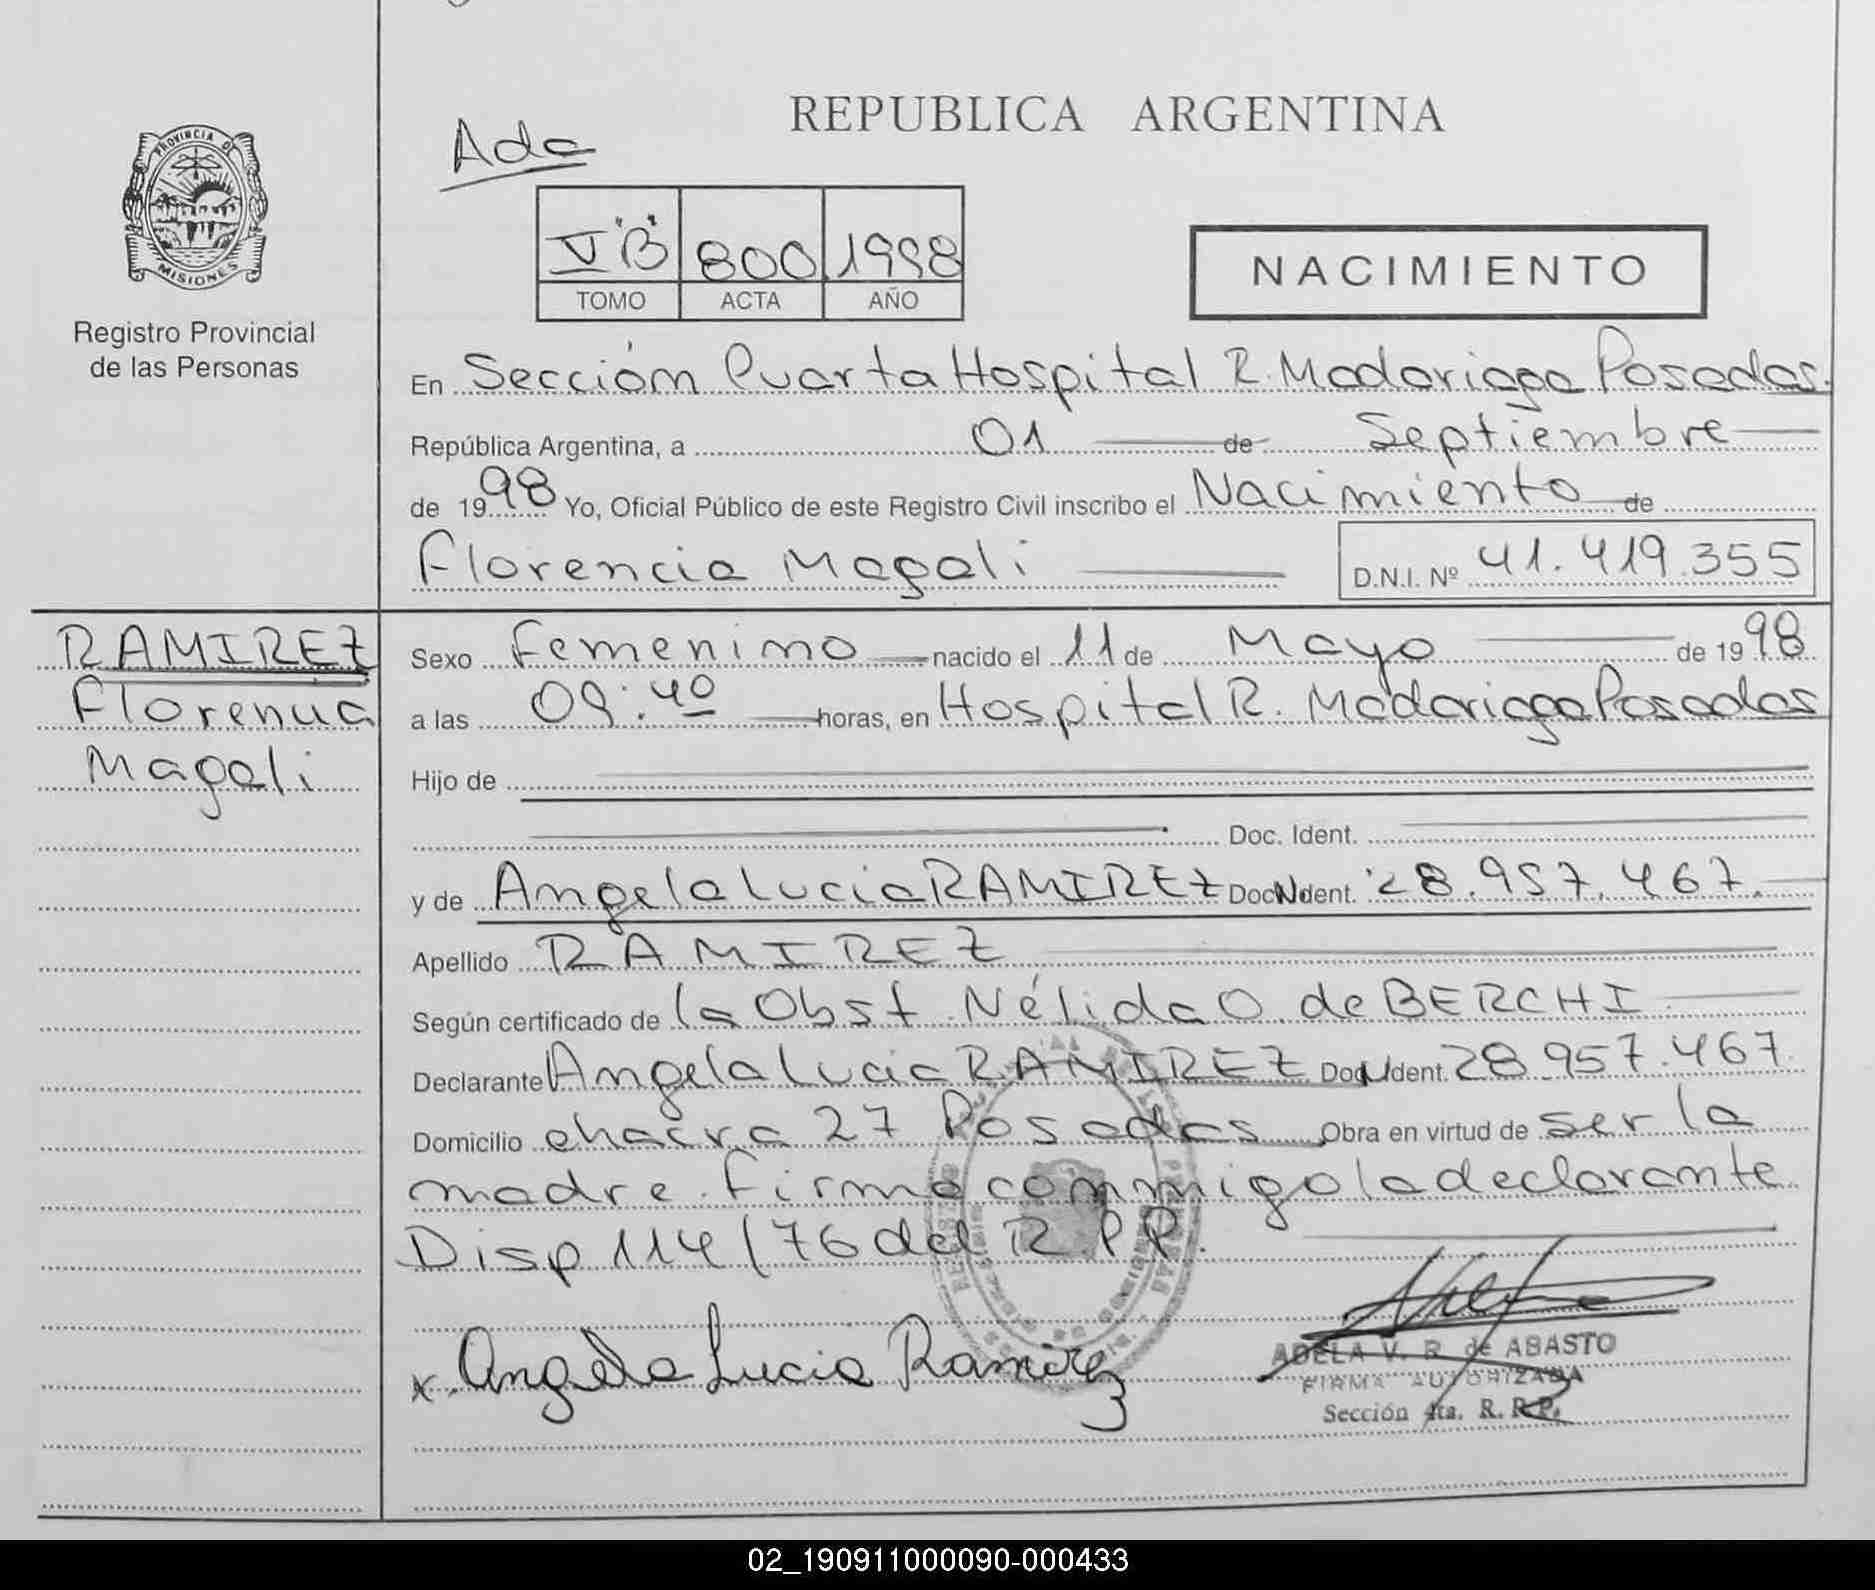 REPUBLICA ARGENTINA
Ada
PROVINCIA DE
MISIONES
V "B" 800 1998
TOMO ACTA AÑO
NACIMIENTO
Registro Provincial
de las Personas
En Sección Cuarta Hospital R. Madariaga Posadas.
República Argentina, a 01 de Septiembre
de 1998 Yo, Oficial Público de este Registro Civil inscribo el Nacimiento de
Florencia Magali D.N.I. Nº 41.419.355
RAMIREZ
Florencia
Magali
Sexo Femenino nacido el 11 de Mayo de 1998
a las 09:40 horas, en Hospital R. Madariaga Posadas
Hijo de
Doc. Ident.
y de Angela Lucia RAMIREZ Doc. Ident. 28.957.467.
Apellido RAMIREZ
Según certificado de la Obst Nélida O. de BERCHI
Declarante Angela Lucia RAMIREZ Doc. Ident. 28.957.467.
Domicilio chacra 27 Posadas Obra en virtud de ser la
madre. Firma conmigo la declarante
Disp 114/76 del R.P.P.
x. Angela Lucia Ramirez
ADELA V. R. de ABASTO
FIRMA AUTORIZADA
Sección 4ta. R. P. P.
02_190911000090-000433